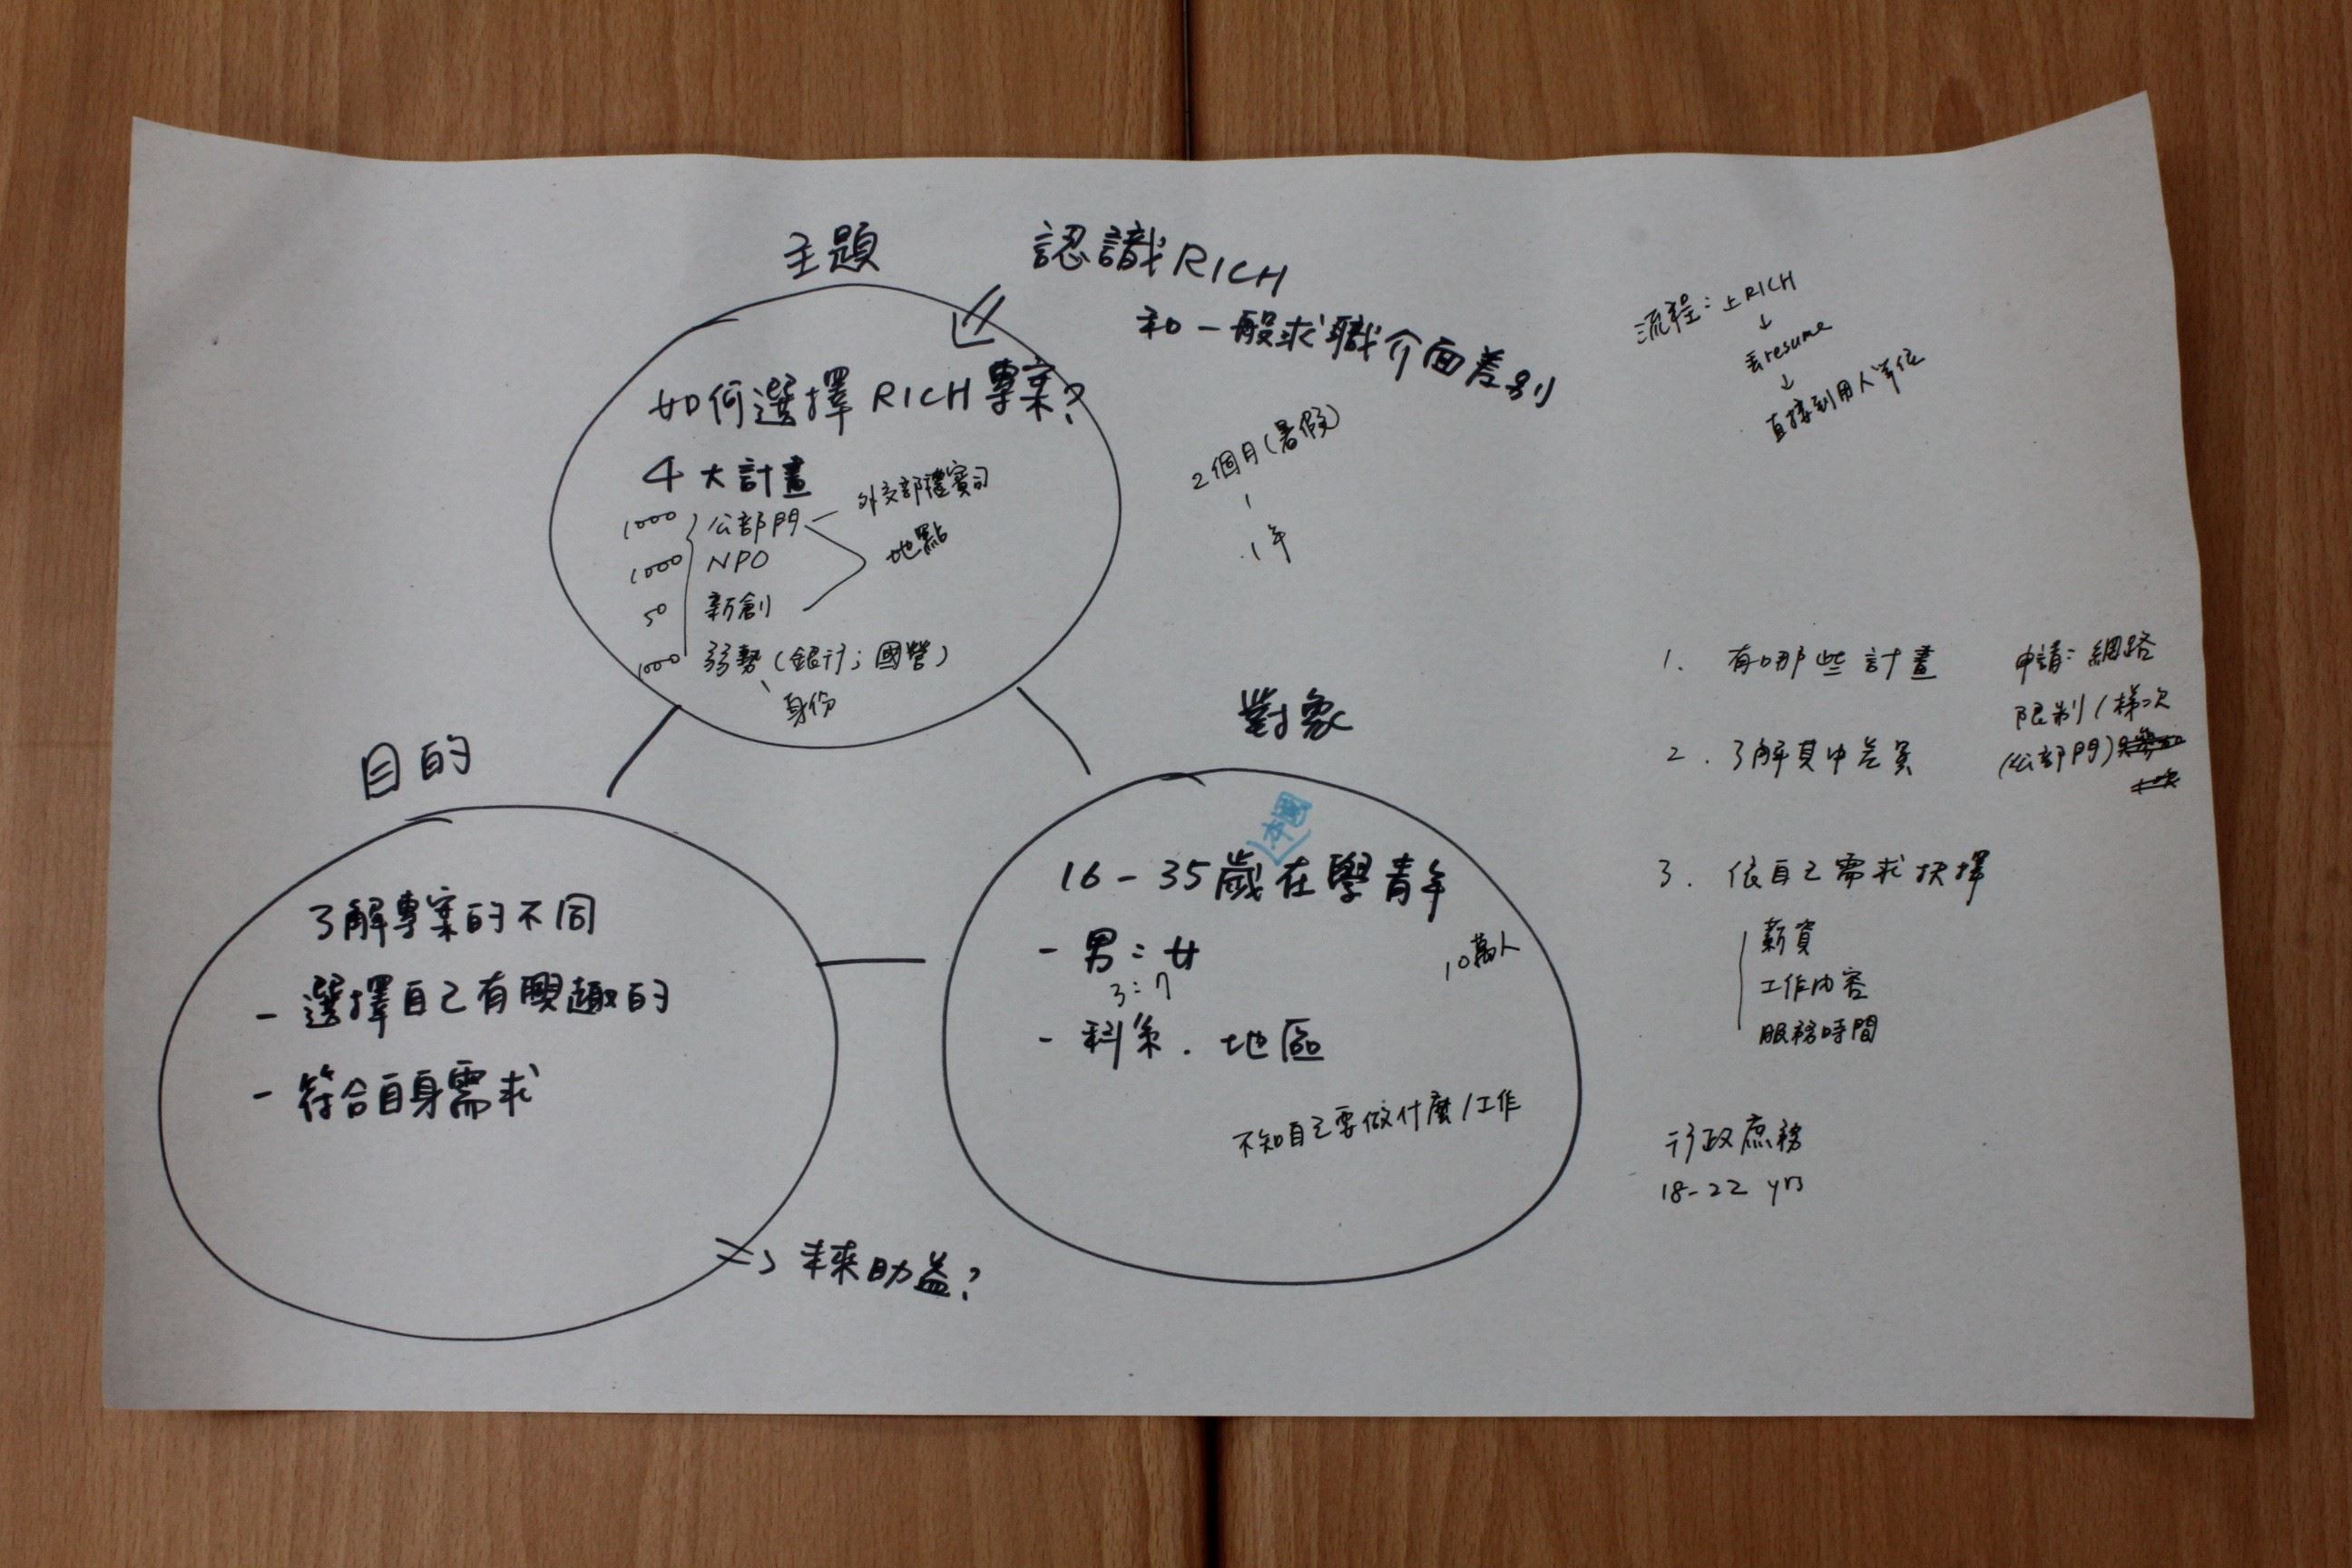 主題
認識RICH
和一般求職介面差別
如何選擇RICH專案?
4大計畫
1000 公部門 - 外交部禮賓司
地點
1000 NPO
50 新創
1000 弱勢(銀行;國營)
身份
2個月(暑假)
1年
流程:上RICH
↓
丟resume
↓
直接到用人單位
目的
了解專案的不同
- 選擇自己有興趣的
- 符合自身需求
=> 未來助益?
對象
本國
16-35歲在學青年
- 男:女
3:7
10萬人
- 科系.地區
不知自己要做什麼/工作
1. 有哪些計畫
2. 了解其中差異
3. 依自己需求抉擇
薪資
工作內容
服務時間
申請:網路
限制/梯次
(公部門)
行政庶務
18-22 yrs